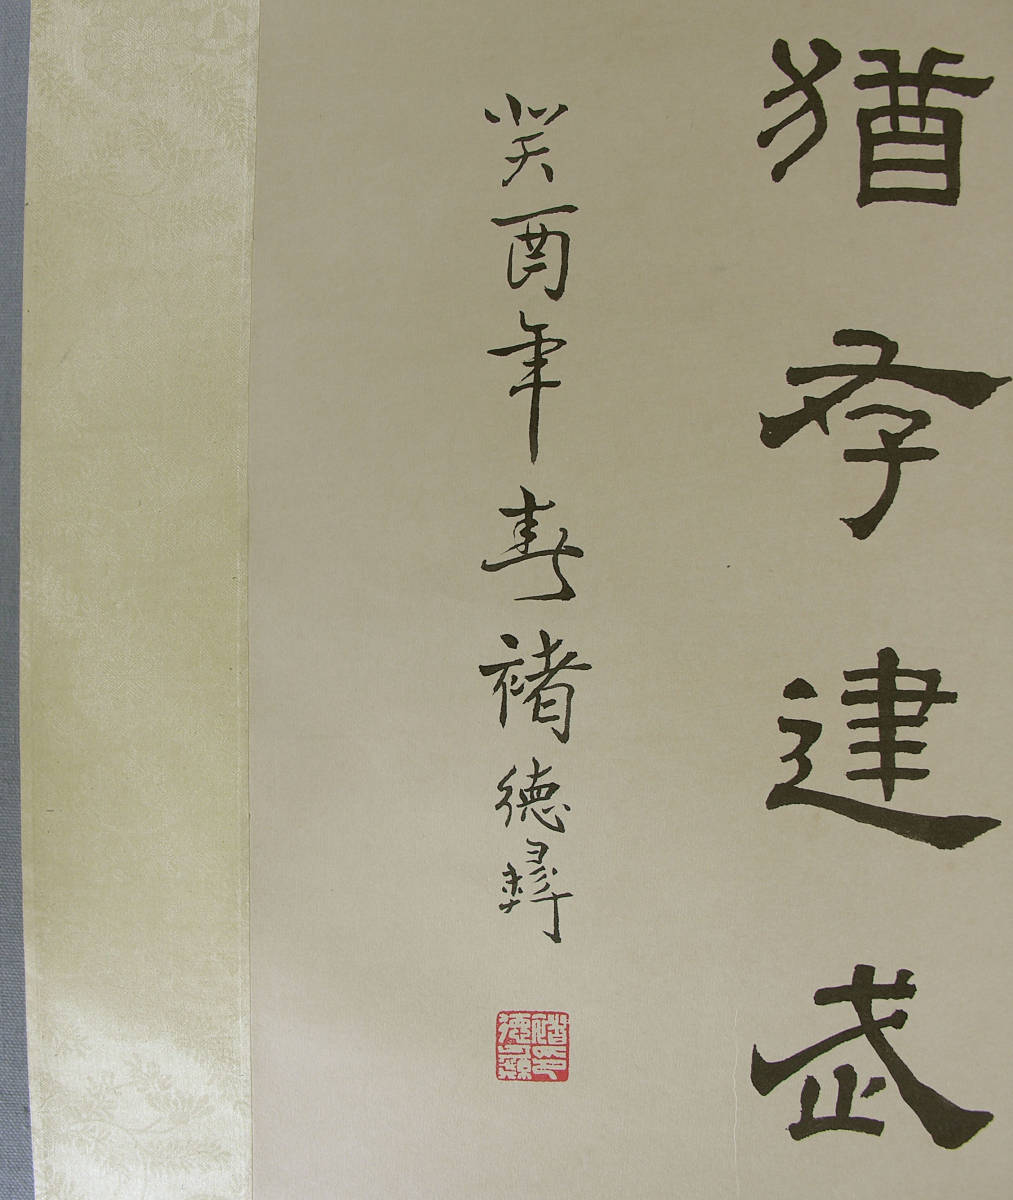 猶存建武
癸酉年春褚德彝
褚德彝印